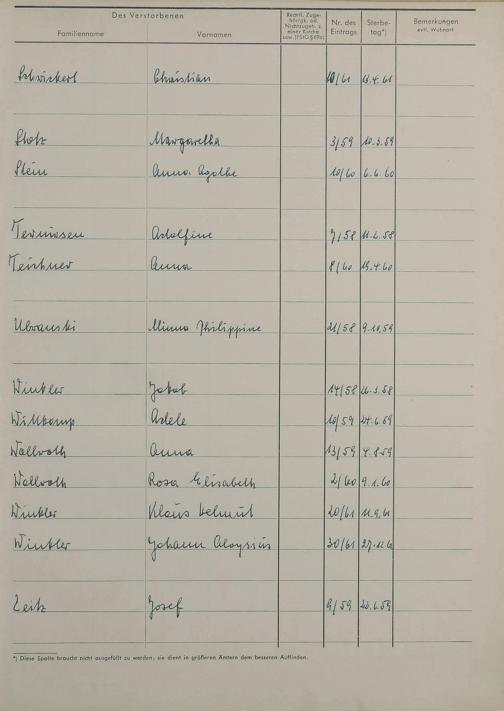 Des Verstorbenen
Familienname Vornamen
Rechtl. Zuge-
hörigk. od.
Nichtzugeh. z.
einer Kirche
usw. (PStG §69a)
Nr. des
Eintrags
Sterbe-
tag*)
Bemerkungen
evtl. Wohnort
Schwickert Christian 10/61 13.4.61
Stotz Margaretha 3/59 10.3.59
Stein Anna Agathe 10/60 6.6.60
Termiesen Adolfine 7/58
Teichner Anna 8/60 19.4.60
Urbanski Minna Philippine 21/58
Winkler Jakob 14/58
Wittkamp Adele 10/59 24.6.59
Wallroth Anna 13/59 4.8.59
Wallroth Rosa Elisabeth 2/60 9.1.60
Winkler Klaus Helmut 20/61 11.9.61
Winkler Johann Aloysius 30/61
Zeitz Josef 9/59
*) Diese Spalte braucht nicht ausgefüllt zu werden; sie dient in größeren Ämtern dem besseren Auffinden.